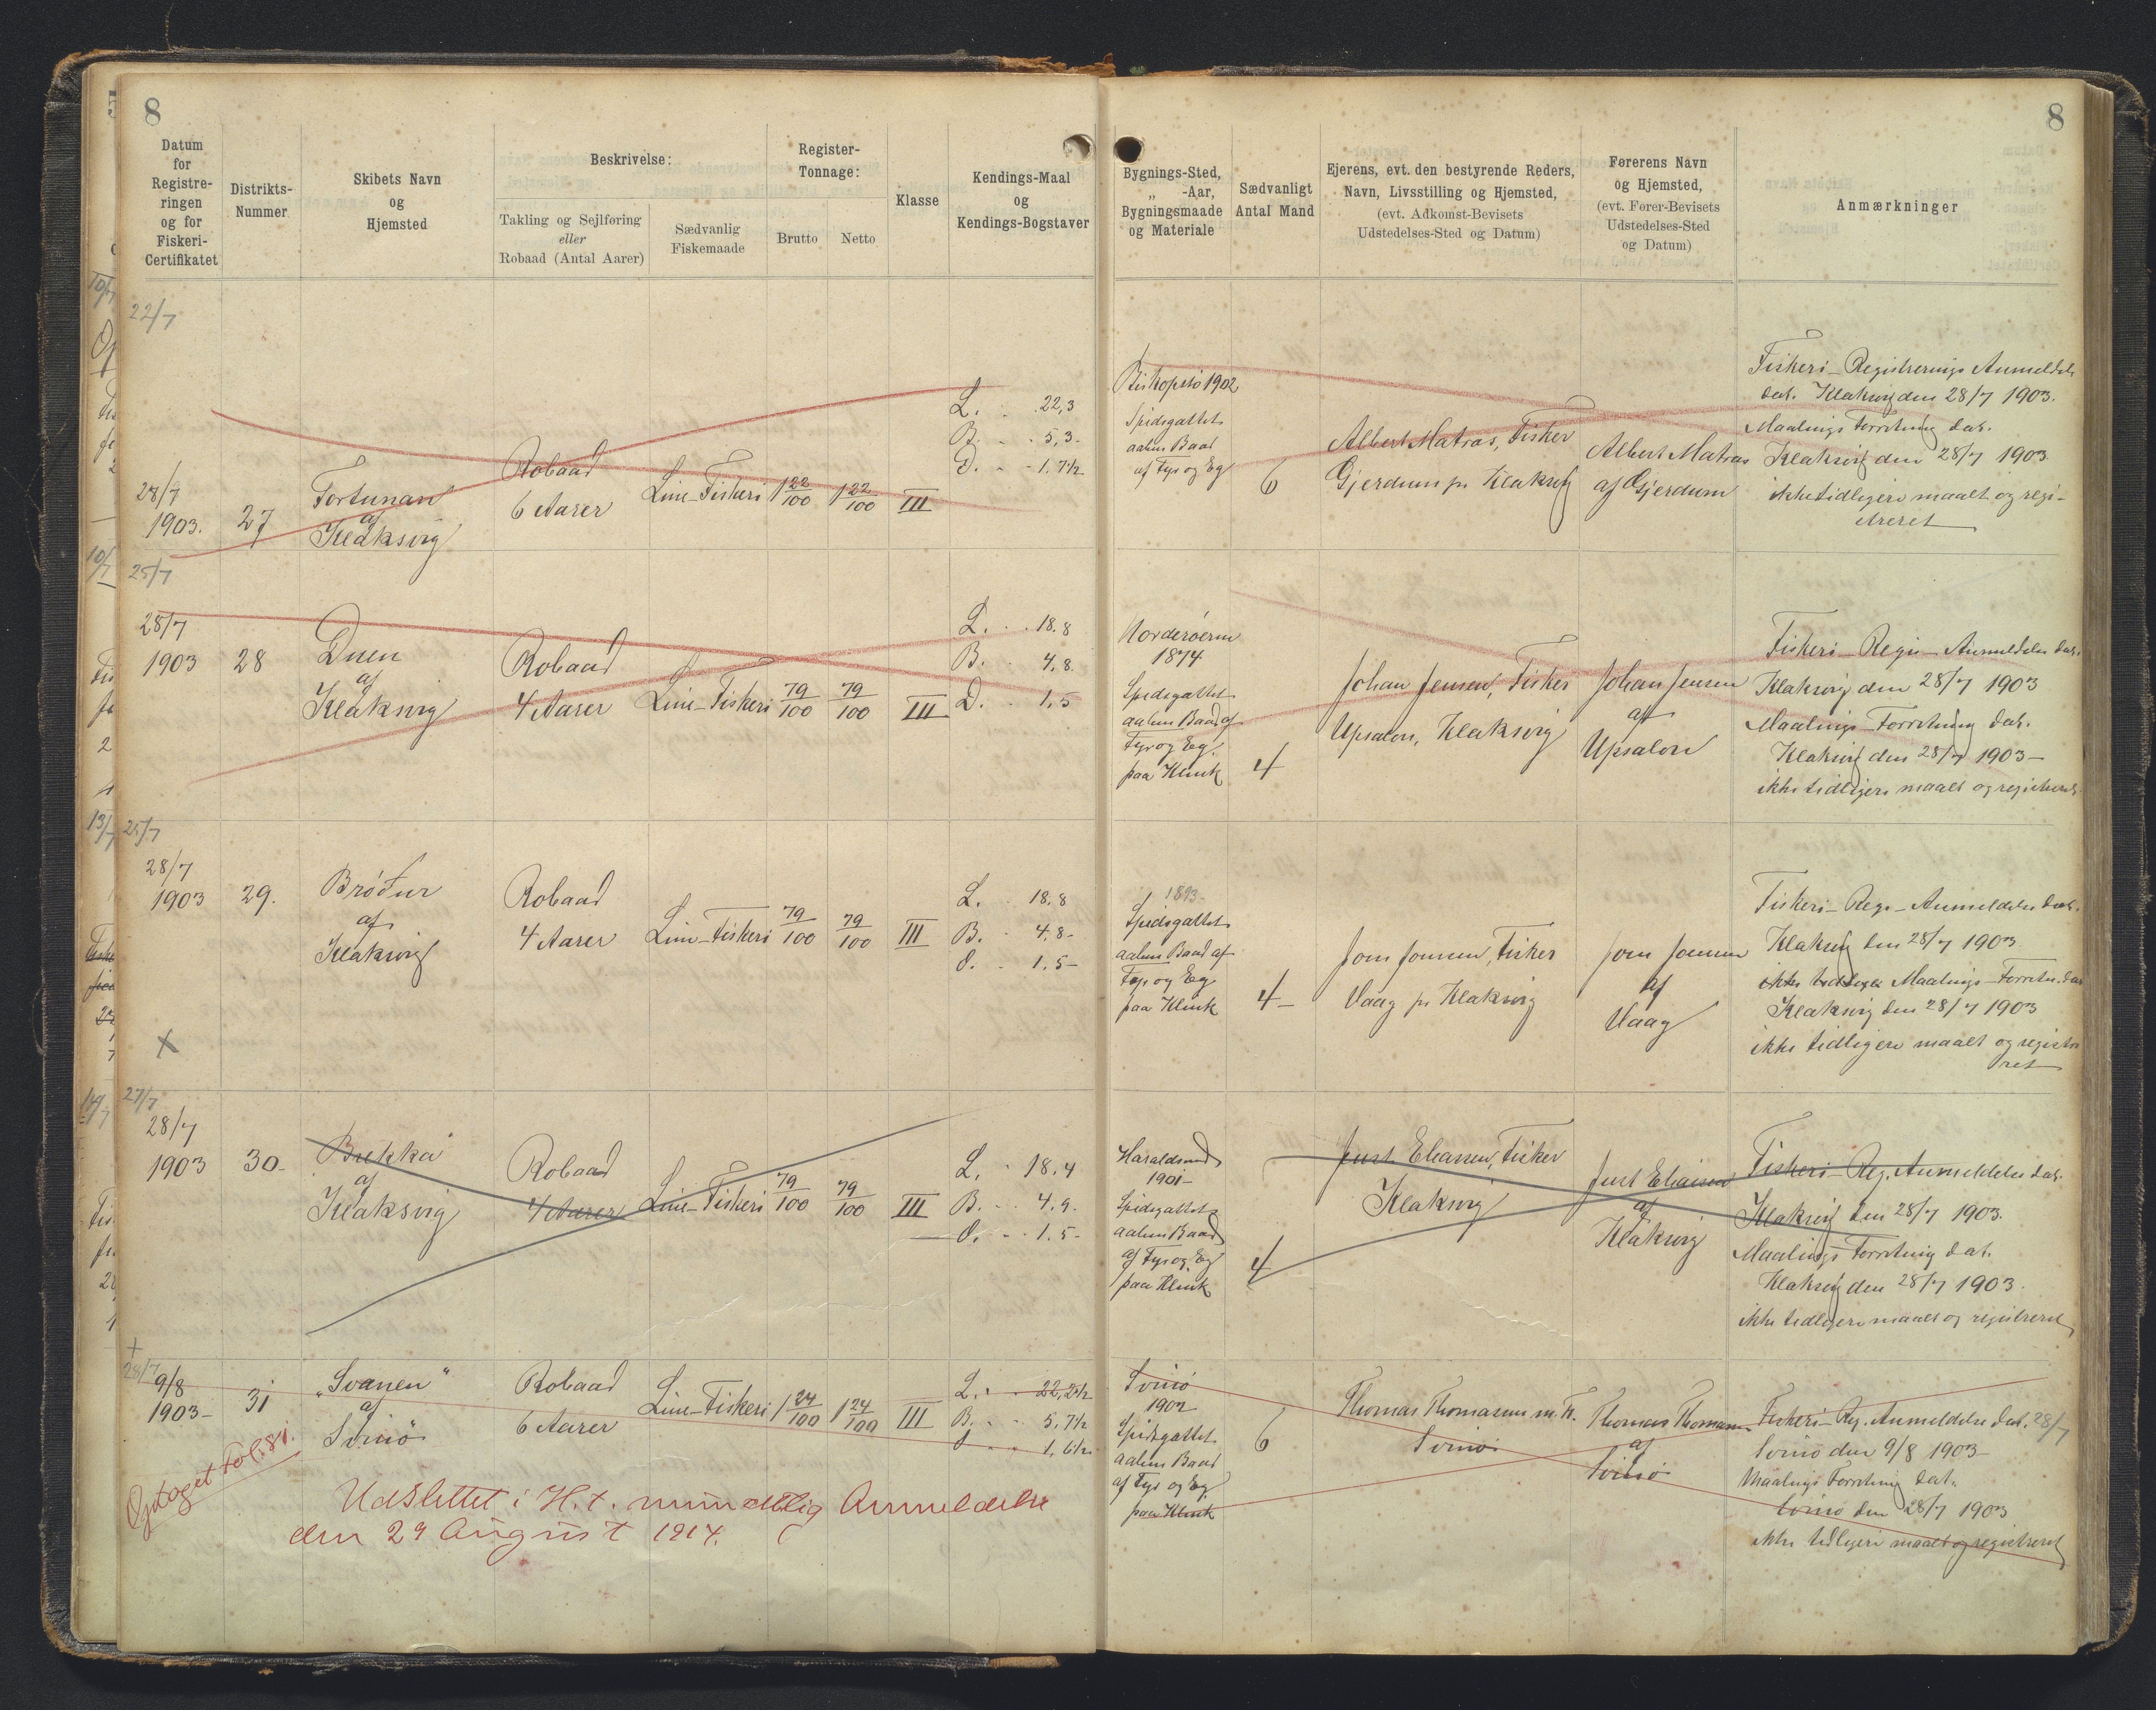 8
8
Datum
for
Registre-
ringen
og for
Fiskeri-
Certifikatet
Distrikts-
Nummer
Skibets Navn
og
Hjemsted
Beskrivelse:
Takling og Sejlføring
eller
Robaad (Antal Aarer)
Sædvanlig
Fiskemaade
Register-
Tonnage:
Brutto
Netto
Klasse
Kendings-Maal
og
Kendings-Bogstaver
Bygnings-Sted,
„ -Aar,
Bygningsmaade
og Materiale
Sædvanligt
Antal Mand
Ejerens, evt. den bestyrende Reders,
Navn, Livsstilling og Hjemsted,
(evt. Adkomst-Bevisets
Udstedelses-Sted og Datum)
Førerens Navn
og Hjemsted,
(evt. Fører-Bevisets
Udstedelses-Sted
og Datum)
Anmærkninger
22/7
28/7
1903.
27
Fortunan
af
Klaksvig
Robaad
6 Aarer
Line-Fiskeri
1 22/100
1 22/100
III
L. . . 22,3
B. . . 5,3-
D. . - 1,7½
1902
Spidsgattet
aaben Baad
af Fyr og Eg
6
Albert Matras, Fisker
Gjerdum pr Klaksvig
Albert Matras
af Gjerdum
Fiskeri-Registrerings Anmeldelse
dat. Klaksvig den 28/7 1903.
Maalings Forretning dat.
Klaksvig den 28/7 1903
ikke tidligere maalt og regi-
streret
25/7
28/7
1903
28
Duen
af
Klaksvig
Robaad
4 Aarer
Line-Fiskeri
79/100
79/100
III
L. . . 18.8
B. . 4,8.
D. . 1,5
Norderöerne
1874
Spidsgattet
aaben Baad af
Fyr og Eg.
paa Klink
4
Johan Jensen, Fisker
Upsalon, Klaksvig
Johan Jensen
af
Upsalon
Fiskeri-Regis-Anmeldelse dat.
Klaksvig den 28/7 1903
Maalings-Forretning dat.
Klaksvig den 28/7 1903-
ikke tidligere maalt og registreret
25/7
28/7
1903
29.
Bróður
af
Klaksvig
Robaad
4 Aarer
Line-Fiskeri
79/100
79/100
III
L. . 18.8
B. . 4,8-
d. . 1.5-
1893-
Spidsgattet
aaben Baad af
Fyr og Eg
paa Klink
4-
Fisker
Vaag pr Klaksvig
af
Vaag
Fiskeri-Regs-Anmeldelse dat.
Klaksvig den 28/7 1903
ikke tidligere Maalings-Forretn. dat
Klaksvig den 28/7 1903
ikke tidligere maalt og registre
ret
x
27/7
28/7
1903
30-
Brekka
af
Klaksvig
Robaad
4 Aarer
Line-Fiskeri
79/100
79/100
III
L. . 18,4
B. . . 4.9.
d. . - 1.5-
Haraldsund
1901-
Spidsgattet
aaben Baad
af Fyr og Eg
paa Klink
4
Just Eliassen, Fisker
Klaksvig
Just Eliassen
af
Klaksvig
Fiskeri-Reg. Anmeldelse dat.
Klaksvig den 28/7 1903.
Maalings Forretning dat.
Klaksvig den 28/7 1903.
ikke tidligere maalt og registreret
+
28/7
9/8
1903-
31
„Svanen"
af
Svinö
Robaad
6 Aarer
Line-Fiskeri
1 24/100
1 24/100
III
L. . . 22,2½
B. . . 5,7½
d . . 1,6½
Svinö
1902
Spidsgattet
aaben Baad
af Fyr og Eg.
paa Klink
6
Thomas Thomasen m. fl.
Svinö
Thomas Thomasen
af
Svinö
Fiskeri-Reg. Anmeldelse dat. 28/7
Svinö den 9/8 1903-
Maalings Forretning dat.
Svinö den 28/7 1903
ikke tidligere maalt og registreret
Optaget Fol. 81.
Udslettet i H.t. mundtlig Anmeldelse
den 29 August 1914.